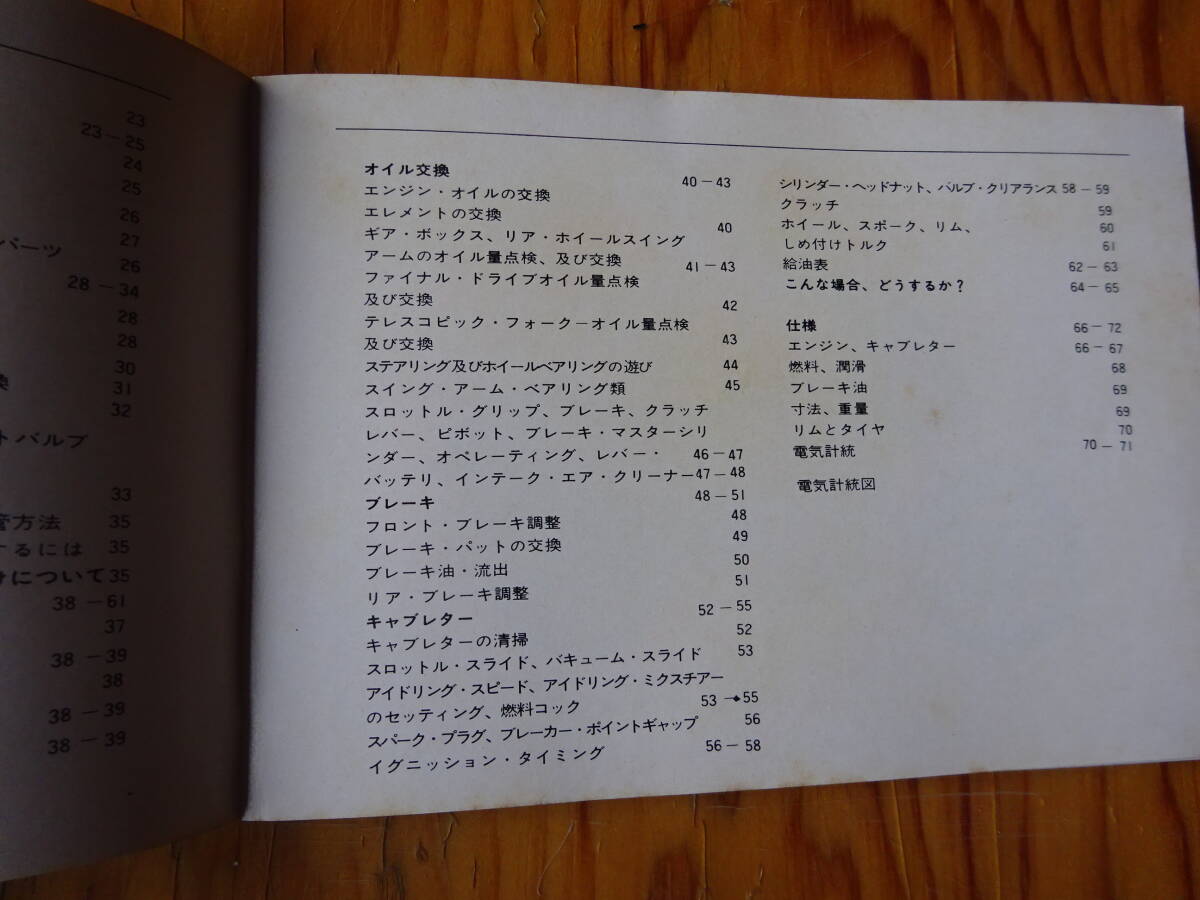 23
23－25
24
25
26
パーツ 27
26
28－34
28
28
30
換 31
32
トバルブ
33
管方法 35
するには 35
けについて35
38－61
37
38－39
38
38－39
38－39
オイル交換 40－43
エンジン・オイルの交換
エレメントの交換 40
ギア・ボックス、リア・ホイールスイング
アームのオイル量点検、及び交換 41－43
ファイナル・ドライブオイル量点検
及び交換 42
テレスコピック・フォークーオイル量点検
及び交換 43
ステアリング及びホイールベアリングの遊び 44
スイング・アーム・ベアリング類 45
スロットル・グリップ、ブレーキ、クラッチ
レバー、ピボット、ブレーキ・マスターシリ
ンダー、オペレーティング、レバー・ 46－47
バッテリ、インテーク・エア・クリーナー47－48
ブレーキ 48－51
フロント・ブレーキ調整 48
ブレーキ・パットの交換 49
ブレーキ油・流出 50
リア・ブレーキ調整 51
キャブレター 52－55
キャブレターの清掃 52
スロットル・スライド、バキューム・スライド 53
アイドリング・スピード、アイドリング・ミクスチアー
のセッティング、燃料コック 53－55
スパーク・プラグ、ブレーカー・ポイントギャップ 56
イグニッション・タイミング 56－58
シリンダー・ヘッドナット、バルブ・クリアランス 58－59
クラッチ 59
ホイール、スポーク、リム、 60
しめ付けトルク 61
給油表 62－63
こんな場合、どうするか？ 64－65
仕様 66－72
エンジン、キャブレター 66－67
燃料、潤滑 68
ブレーキ油 69
寸法、重量 69
リムとタイヤ 70
電気計統 70－71
電気計統図